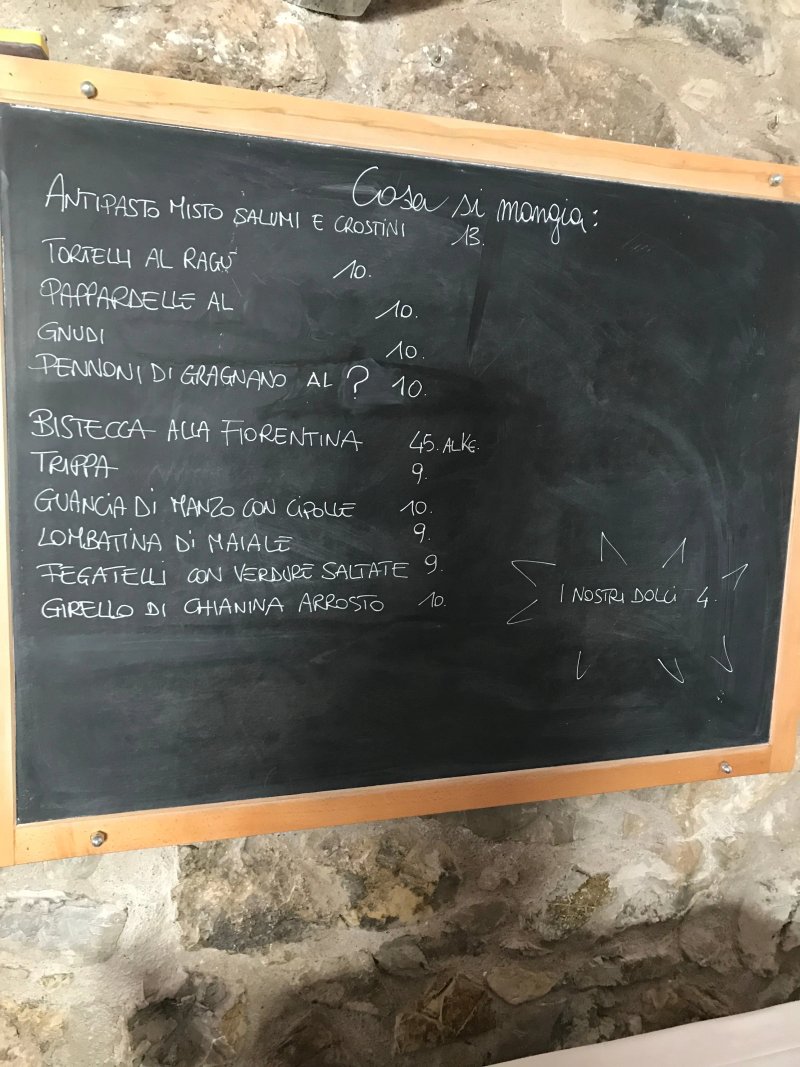 Cosa si mangia:
ANTIPASTO MISTO SALUMI E CROSTINI 13.
TORTELLI AL RAGÙ 10.
PAPPARDELLE AL 10.
GNUDI 10.
PENNONI DI GRAGNANO AL ? 10.
BISTECCA ALLA FIORENTINA 45. AL KG.
TRIPPA 9.
GUANCIA DI MANZO CON CIPOLLE 10.
LOMBATINA DI MAIALE 9.
FEGATELLI CON VERDURE SALTATE 9.
GIRELLO DI CHIANINA ARROSTO 10.
I NOSTRI DOLCI 4.